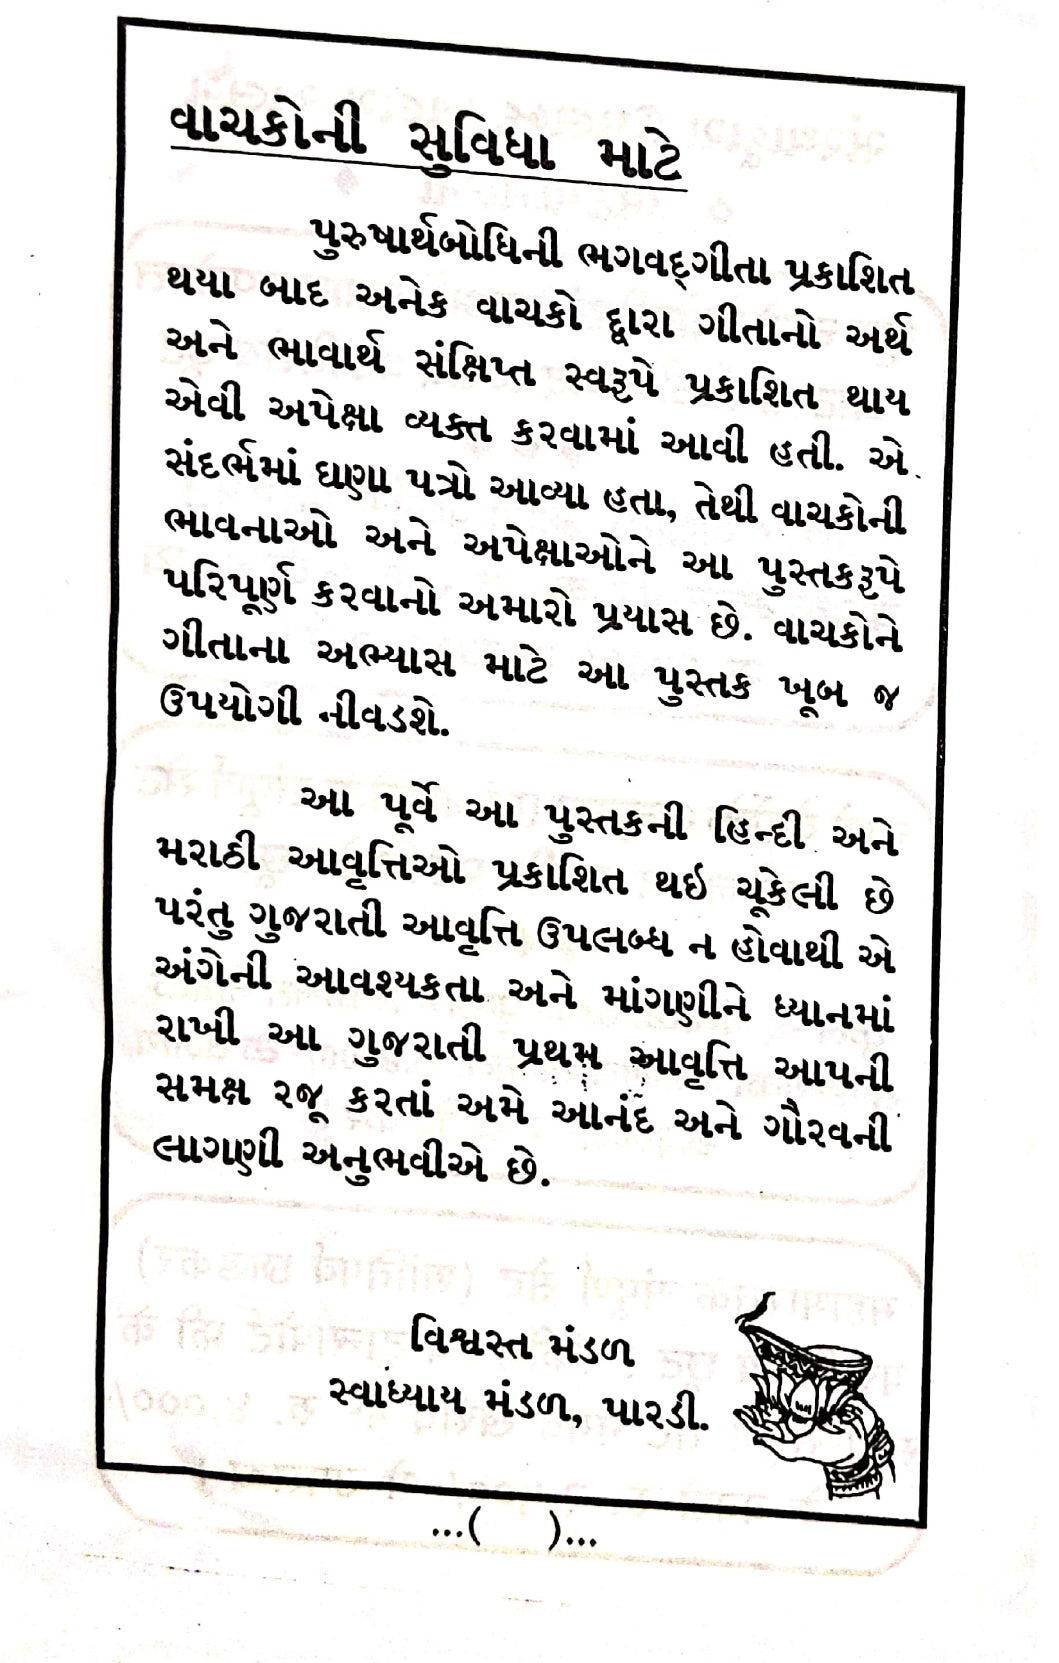 વાચકોની સુવિધા માટે
પુરુષાર્થબોધિની ભગવદ્ગીતા પ્રકાશિત
થયા બાદ અનેક વાચકો દ્વારા ગીતાનો અર્થ
અને ભાવાર્થ સંક્ષિપ્ત સ્વરૂપે પ્રકાશિત થાય
એવી અપેક્ષા વ્યક્ત કરવામાં આવી હતી. એ
સંદર્ભમાં ઘણા પત્રો આવ્યા હતા, તેથી વાચકોની
ભાવનાઓ અને અપેક્ષાઓને આ પુસ્તકરૂપે
પરિપૂર્ણ કરવાનો અમારો પ્રયાસ છે. વાચકોને
ગીતાના અભ્યાસ માટે આ પુસ્તક ખૂબ જ
ઉપયોગી નીવડશે.
આ પૂર્વે આ પુસ્તકની હિન્દી અને
મરાઠી આવૃત્તિઓ પ્રકાશિત થઇ ચૂકેલી છે
પરંતુ ગુજરાતી આવૃત્તિ ઉપલબ્ધ ન હોવાથી એ
અંગેની આવશ્યકતા અને માંગણીને ધ્યાનમાં
રાખી આ ગુજરાતી પ્રથમ આવૃત્તિ આપની
સમક્ષ રજૂ કરતાં અમે આનંદ અને ગૌરવની
લાગણી અનુભવીએ છે.
વિશ્વસ્ત મંડળ
સ્વાધ્યાય મંડળ, પારડી.
...( )...